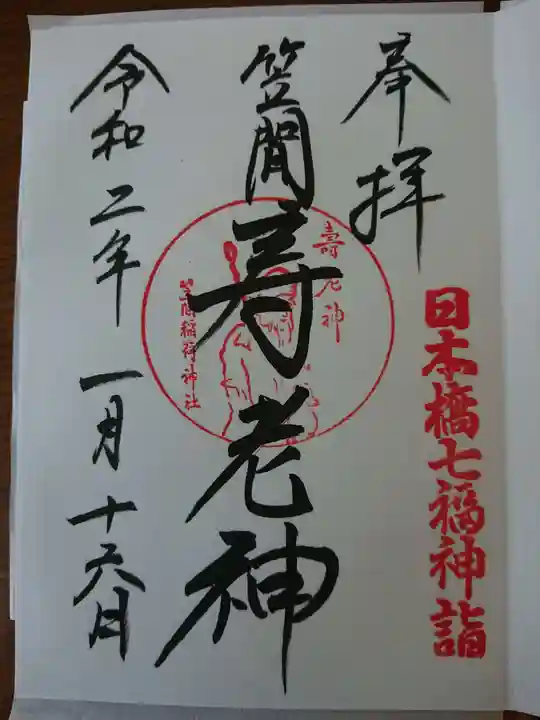 奉拝
日本橋七福神詣
笠間寿老神
壽老神
笠間稲荷神社
令和二年一月十六日